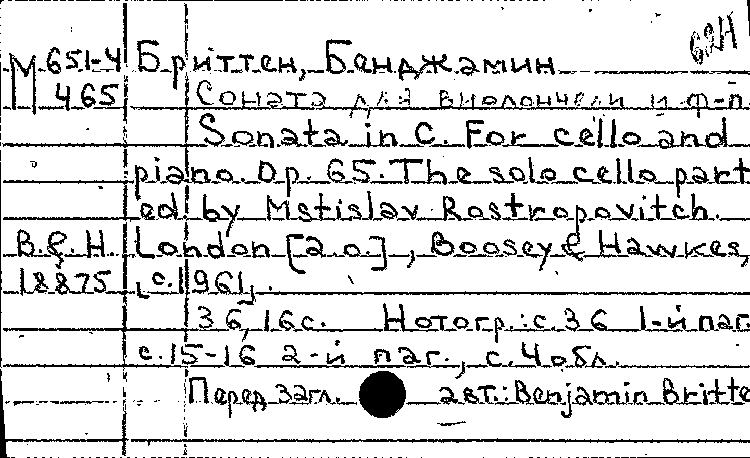 624
М 651-4 Бриттен, Бенджамин
465 Соната для виолончели и ф-п
Sonata in C. For cello and
piano. Op. 65. The solo cello part
ed. by Mstislav Rostropovitch.
B.&H. London [a.o.], Boosey & Hawkes,
18875 [c.1961].
36,16с. Нотогр.: с.36 1-й паг.
с.15-16 2-й паг., с.4 обл.
Перед загл. авт.: Benjamin Britte